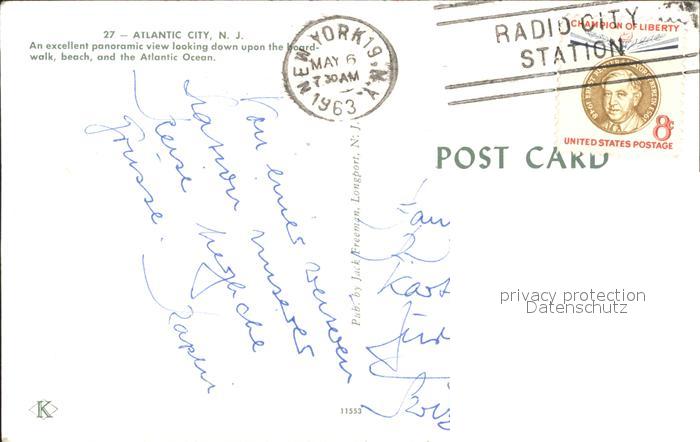 27 — ATLANTIC CITY, N. J.
An excellent panoramic view looking down upon the board-
walk, beach, and the Atlantic Ocean.
NEW YORK 19, N.Y.
MAY 6
7 30 AM
1963
RADIO CITY
STATION
CHAMPION OF LIBERTY
8c
UNITED STATES POSTAGE
POST CARD
Von einer weiteren
Station unserer
Reise herzliche
Grüsse.
Pub. by Jack Freeman, Longport, N. J.
11553
K
privacy protection
Datenschutz